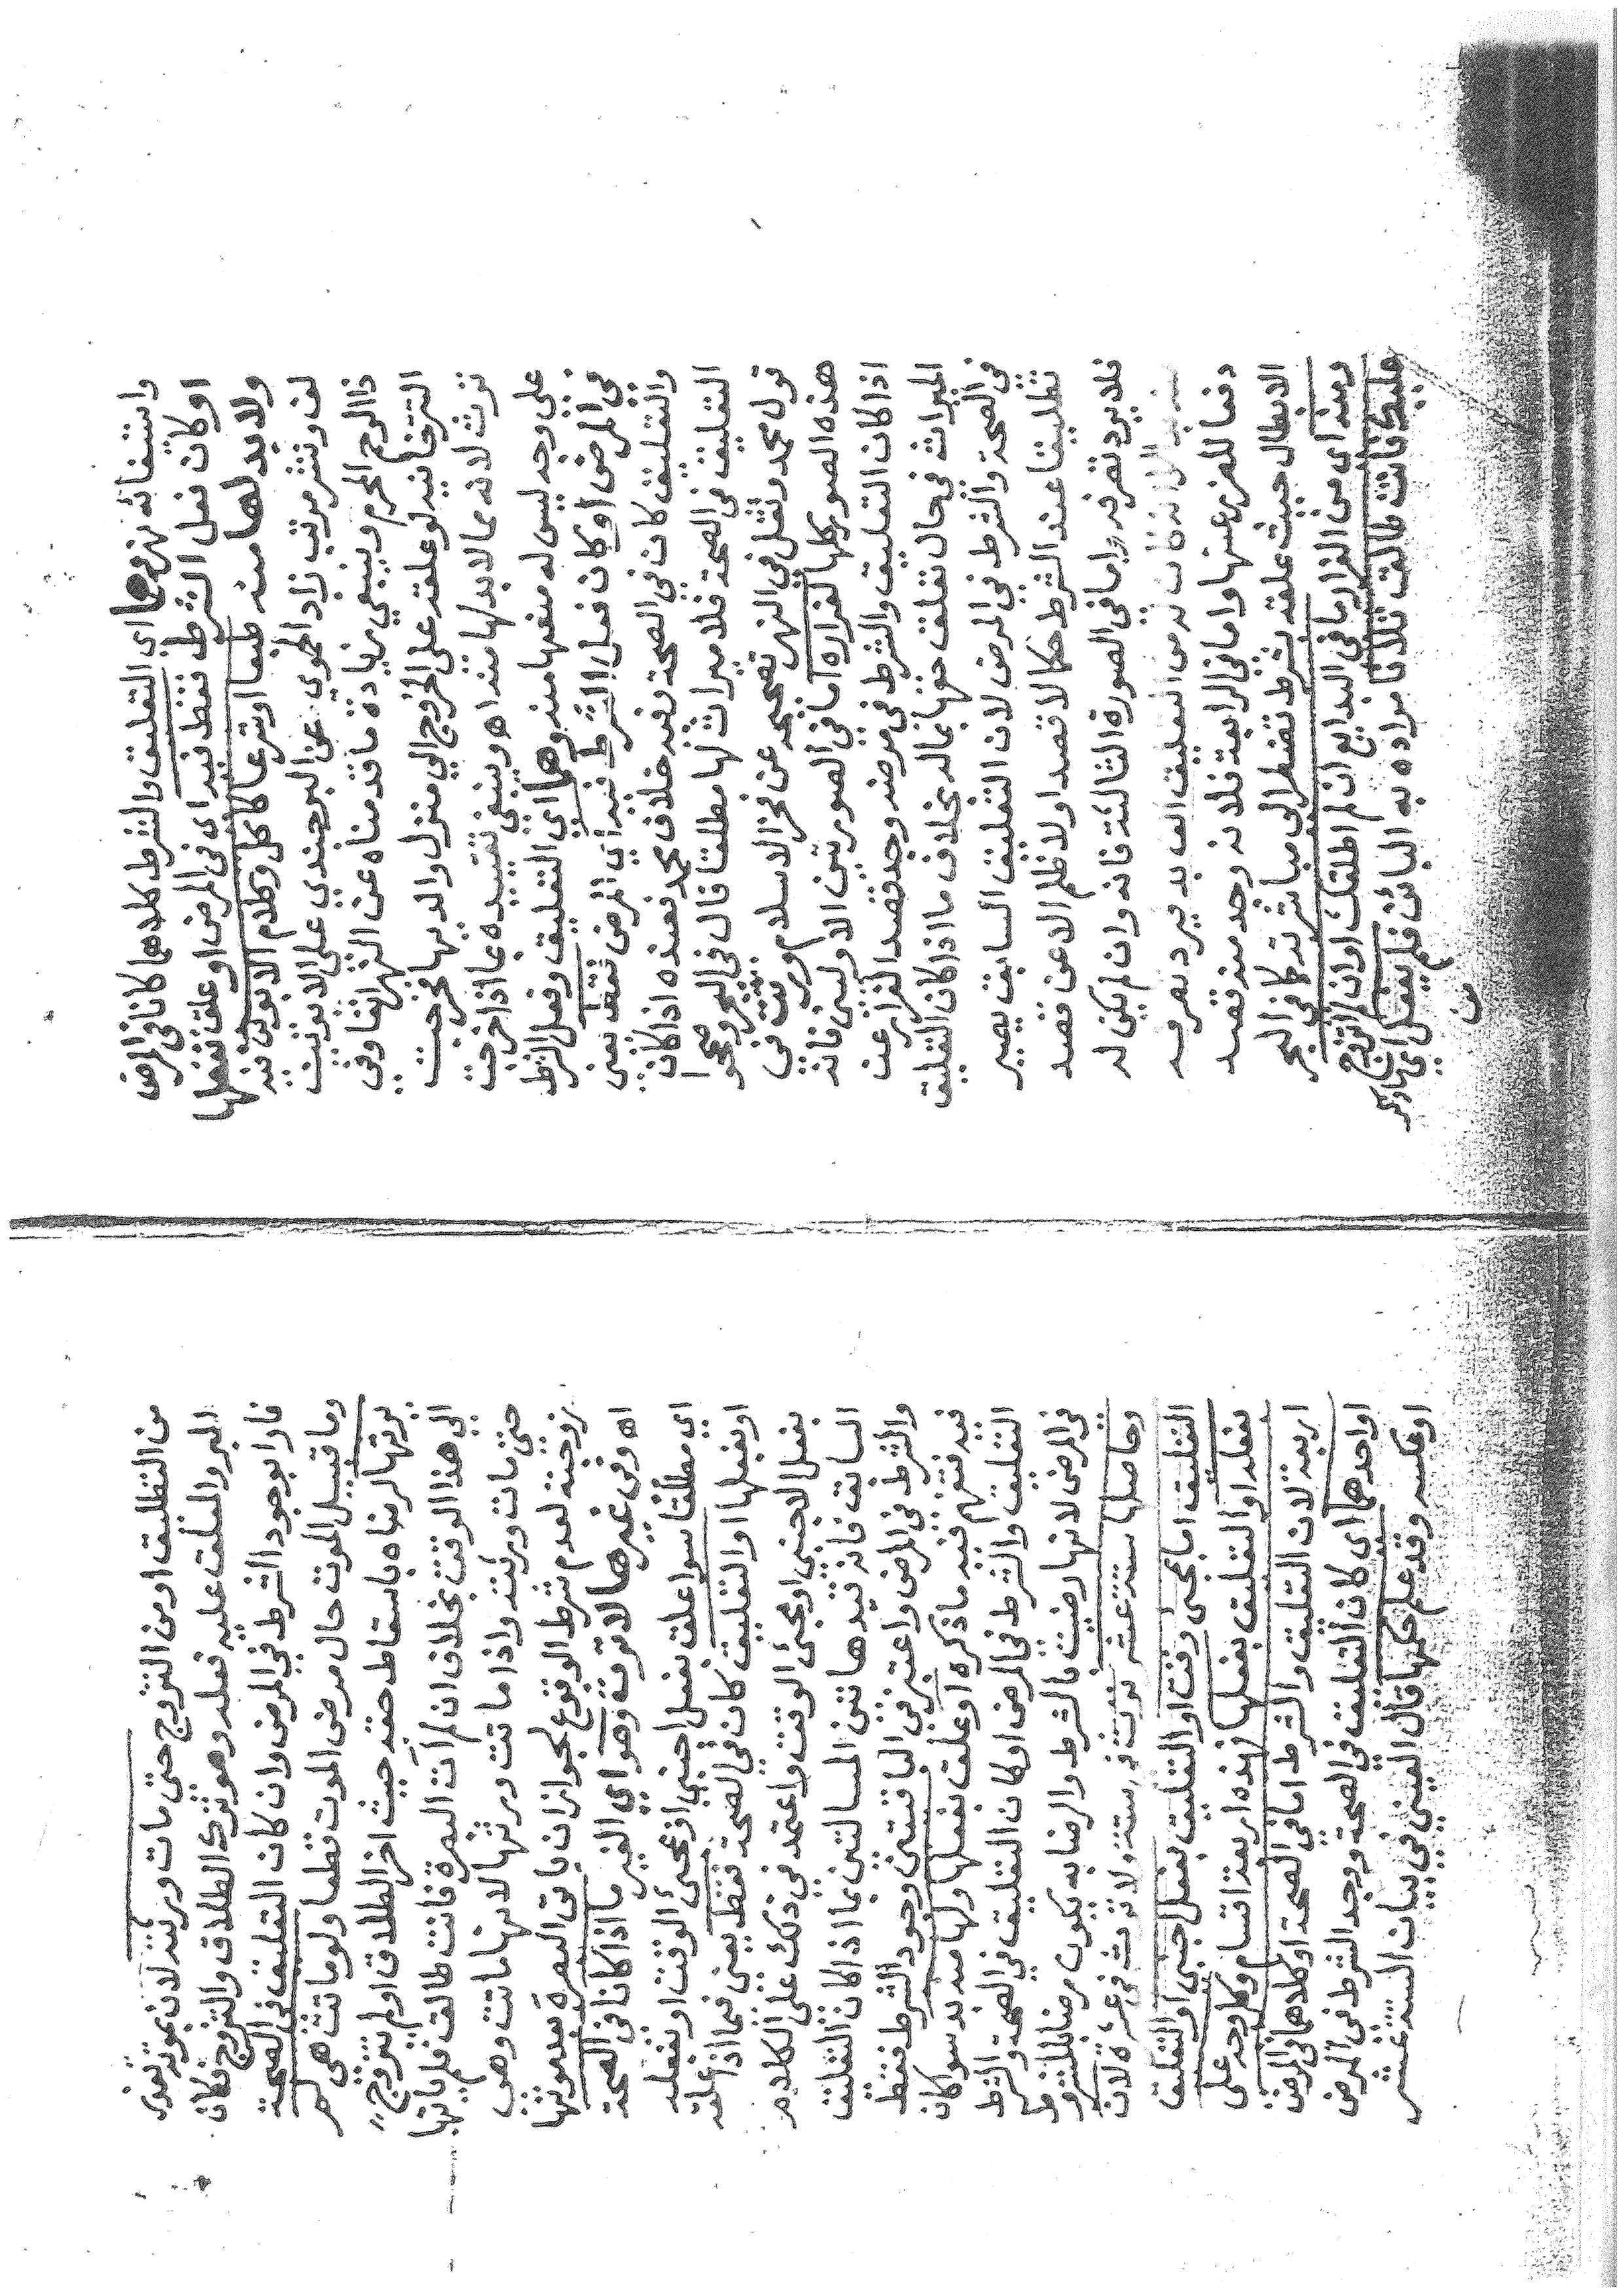 واستيفائه نهر وهما اي التعليق والشرط كلاهما كانا في المرض
او كان فعل الشرط فقط فيه اي في المرض او علق بفعلها
ولا بد لها منه طبعا او شرعا كاكل وكلام الابوين فيه
لف ونشر مرتب زاد الحموي عن البرجندي على الابوين
ذا الرحم المحرم وينبغي زيادة ما قدمناه عن النهر اتفا وفي
لو علقه على الخروج الى منزل والديها فخرجت
ترث لانه مما لا بد لها منه اه وينبغي تقييده بما اذا خرجت
على وجه ليس له منعها منه وهما اي التعليق وفعل الشرط
في المرض او كان فعل الشرط فيه اي المرض فقط يعني
والتعليق كان في الصحة وفيه خلاف محمد فعنده اذا كان
التعليق في الصحة فلا ميراث لها مطلقا قال في البحر وصححوا
قول محمد ونقل في النهر تصحيحه عن فخر الاسلام ورثت في
هذه الصور كلها لفراره اما في الصورتين الاوليين فانه
اذا كان التعليق والشرط في مرضه وجد قصد الفرار عن
الميراث في حال تعلق حقها بماله بخلاف ما اذا كان التعليق
في الصحة والشرط في المرض لان التعليق السابق يصير
تطليقا عند الشرط حكما لا قصدا ولا ظلم الا عن قصد
فلا يرد تصرفه واما في الصورة الثالثة فانه وان لم يكن له
الا انه كان له من التعليق الف بد فيرد تصرفه
دفعا للضرر عنها واما في الرابعة فلانه وجد منه قصد
الابطال حيث علقه بشرط تضطر الى مباشرته كما في البحر
ومنه اي من الفرار ما في البدايع ان لم اطلقك او ان لم اتزوج
عليك فانت طالق ثلاثا مراده به البائن فلم يفعل اي ما ذكر
من
من التطليق او من التزوج حتى مات ورثته لان بموته تعذر
البر والمعلق عليه فعله وهو ترك الطلاق والتزوج فكان
فارا بوجود الشرط في المرض وان كان التعليق في الصحة
وما قبيل الموت حال مرض الموت قطعا ولو ماتت هي لم
يرثها لرضاه باسقاط حقه حيث اخر الطلاق او لم يتزوج
الى هذا الوقت بخلاف ان لم آت البصرة فانت طالق فلم ياتها
حتى مات ورثته واذا ماتت ورثها لانها ماتت وهي
زوجته لعدم شرط الوقوع لجواز ان ياتي البصرة بعد موتها
اه وفي غيرها لا ترثه وهو اي الغير ما اذا كانا في الصحة
اي مطلقا سوا علق بفعل اجنبي او بمجئ الوقت او بفعله
او بفعلها او التعليق كان في الصحة فقط يعني فيما اذا علقه
بفعل الاجنبي او بمجئ الوقت واعتمد في ذلك على الكلام
السابق فانه قيد هاتين المسالتين بما اذا كان التعليق
والشرط في المرض واعتبر في الباقيتين وجود الشرط فقط
فيه فتفهم قيد ما ذكره او علق بفعلها ولها منه بد سوا كان
التعليق والشرط في المرض او كان التعليق في الصحة والشرط
في المرض لانها رضيت بالشرط والرضا به يكون رضا بالمشروط
وحاصلها ستة عشر ترث في ستة ولا ترث في عشرة لان
التعليق اما بمجئ وقت او التعليق بفعل اجنبي او التعليق
بفعله او التعليق بفعلها فهذه اربعة اقسام وكل وجه على
اربعة لان التعليق والشرط اما في الصحة او كلاهما في المرض
او احدهما اي كان التعليق في الصحة ووجد الشرط في المرض
او عكسه وقد علم حكمها قال العيني في بيان الستة عشر